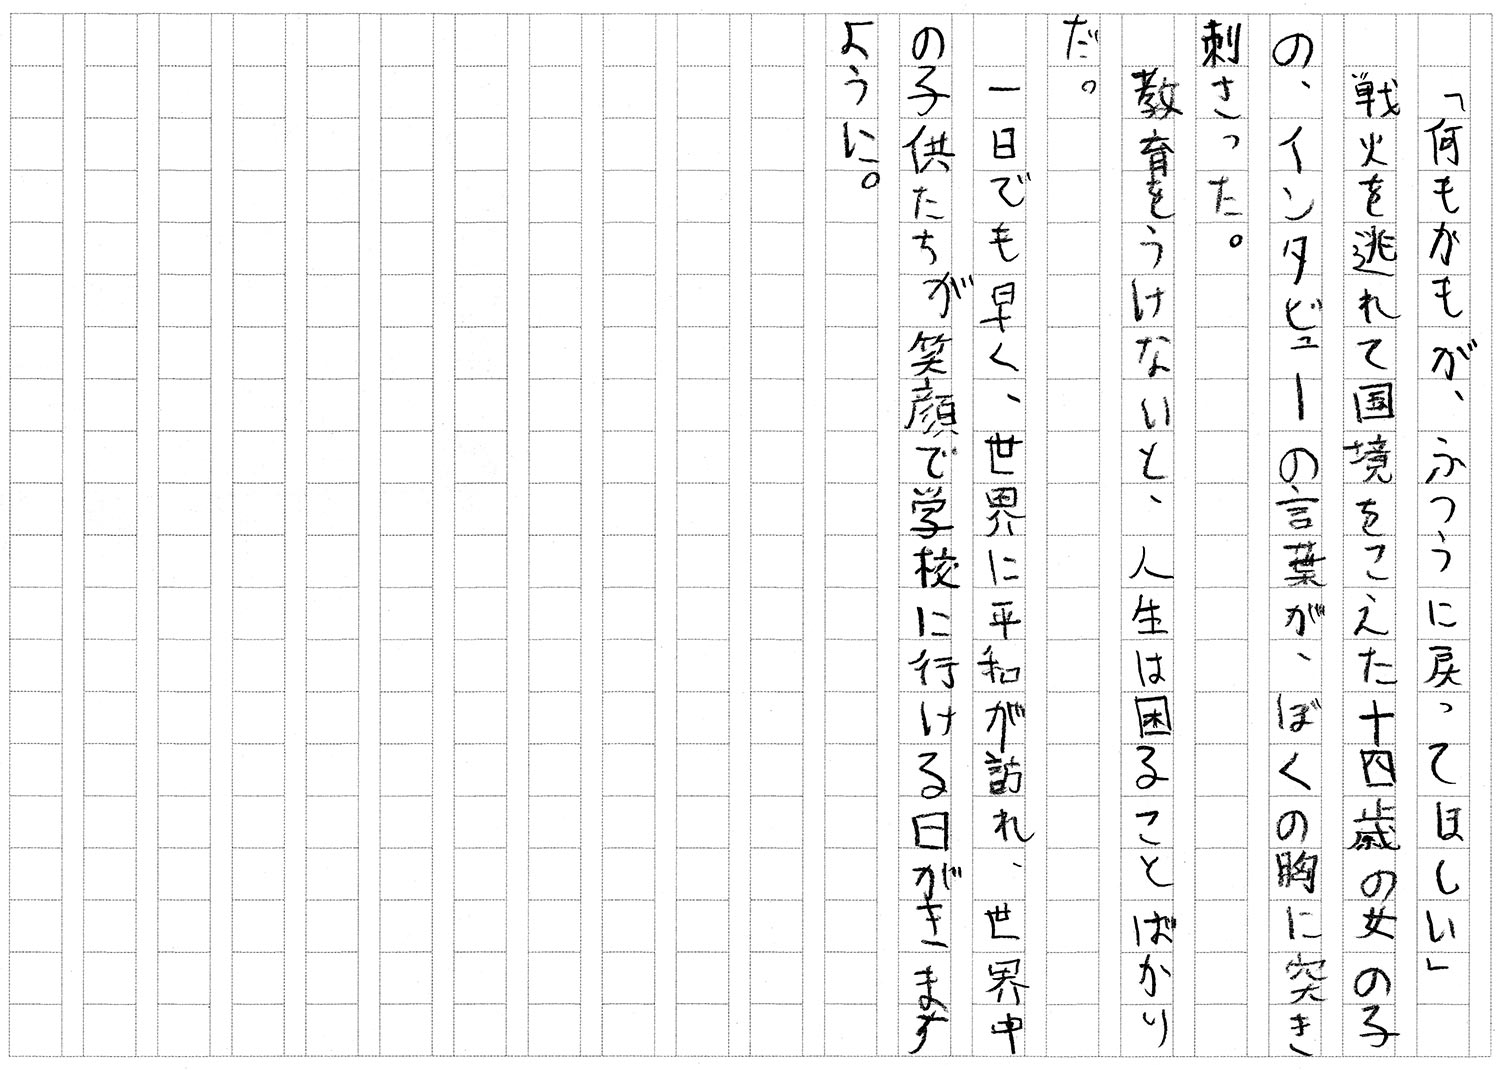 「何もがもが、ふつうに戻ってほしい」
戦火を逃れて国境をこえた十四歳の女の子
の、インタビューの言葉が、ぼくの胸に突き
刺さった。
教育をうけないと、人生は困ることばかり
だ。
一日でも早く、世界に平和が訪れ、世界中
の子供たちが笑顔で学校に行ける日がきます
ように。